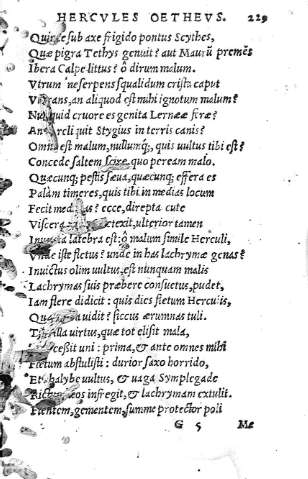 HERCVLES OETHEVS. 229
sub axe frigido pontus Scythes,
Quæ pigra Tethys genuit? aut Maurũ premẽs
Ibera Calpe littus? ô dirum malum.
Vtrum ne serpens squalidum crista caput
an aliquod est mihi ignotum malum?
cruore es genita Lernææ feræ?
An reliquit Stygius in terris canis?
est malum, nullumq;, quis uultus tibi est?
Concede saltem quo peream malo.
Quæcunq; pestis sæua, quæcunq; effera es
Palàm timeres, quis tibi in medias locum
Fecit ecce, direpta cute
Viscera ulterior tamen
latebra est: ô malum simile Herculi,
iste fletus? unde in has lachrymæ genas?
Inuictus olim uultus, et nunquam malis
Lachrymas suis præbere consuetus, pudet,
Iam flere didicit: quis dies fletum Herculis,
uidit? siccus ærumnas tuli.
uirtus, quæ tot elisit mala,
uni: prima, & ante omnes mihi
Fletum abstulisti: durior saxo horrido,
Et chalybe uultus, & uaga Symplegade
infregit, & lachrymam extulit.
Flentem, gementem, summe protector poli
G 5 Me